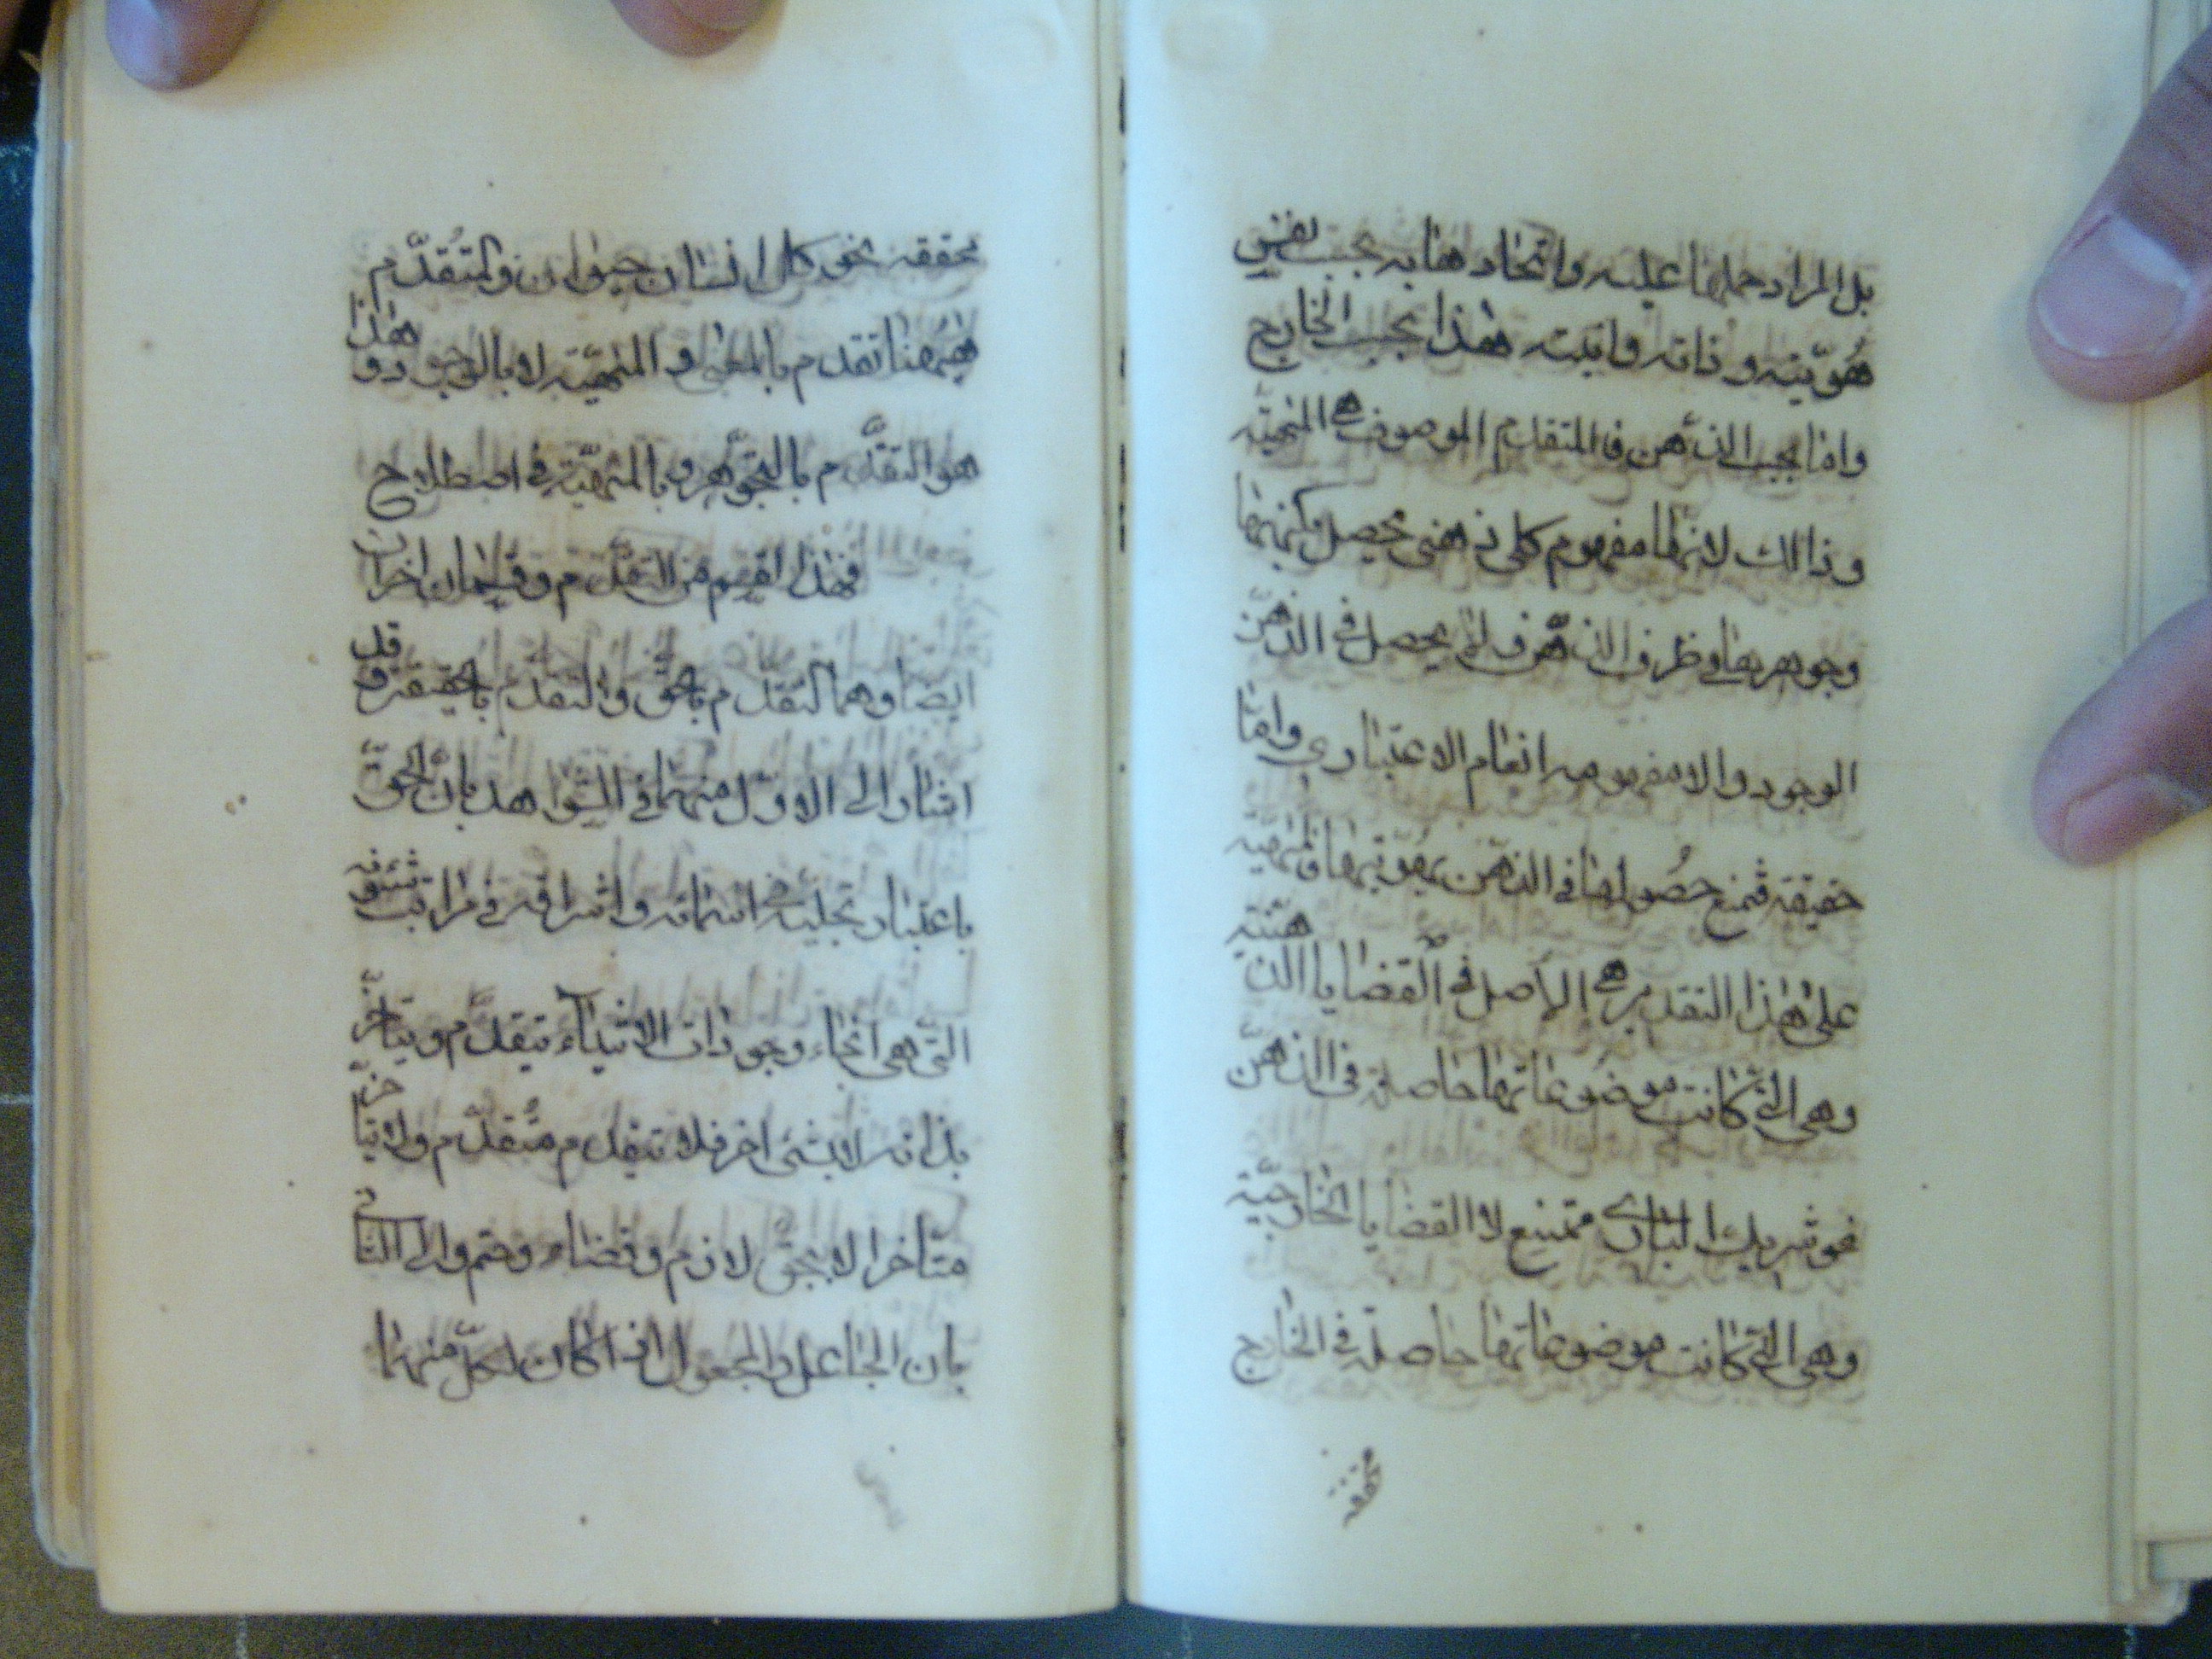 بل المراد حملها عليه واتحاد هنا به بحسب نفس
هُويّته وذاته وانيته هٰذا بحسب الخارج
واما بحسب الذهن فالمتقدم الموصوف هى المٰهيّة
وذالك لانّها مفهوم كلى ذهنى يحصل بكنهها
وجوهرها فى ظرف الذهن ف لا يحصل فى الذهن
الوجود الا مفهومه العام الاعتبارى وامّا
حقيقته فمنع حصُولها فى الذهن بهُويّتها فالمٰهيّة
على هٰذا التقدير هى الاصل فى القضايا الذهنيّة
وهى التى كانت موضوعاتها حاصلة فى الذهن
نحو شريك البارى ممتنع لا القضايا الخارجيّة
وهى التى كانت موضوعاتها حاصلة فى الخارج
محققة
محققة نحو كل انسان حيوان فالمتُقدّم
هيٰهُنا تقدم بالمعنى و المٰهيّة لا بالوجود وهذا
هو التقدّم بالتجوّهر و بالمٰهيّة فى اصطلاح
فهٰذا قسم من التقدّم وقسمان اخران
ايضا وهما التقدّم بالحقّ والتقدّم بالحقيقة وقد
اشار الى الاوّل منهما فى الشواهد بانّ الحقّ
باعتبار تجليه فى اسمائه واشراقه فى مراتب شئونه
التى هى انحاء وجودات الاشياء يتقدّم ويتأخّر
بذاته لا بشئ اخر فلا يتقدم متُقدّم ولا يتأخّر
متأخر الا بحقّ لازم وقضاء وحتم والى الثانى
بان الجاعل والمجعول اذا كان لكلّ منهما